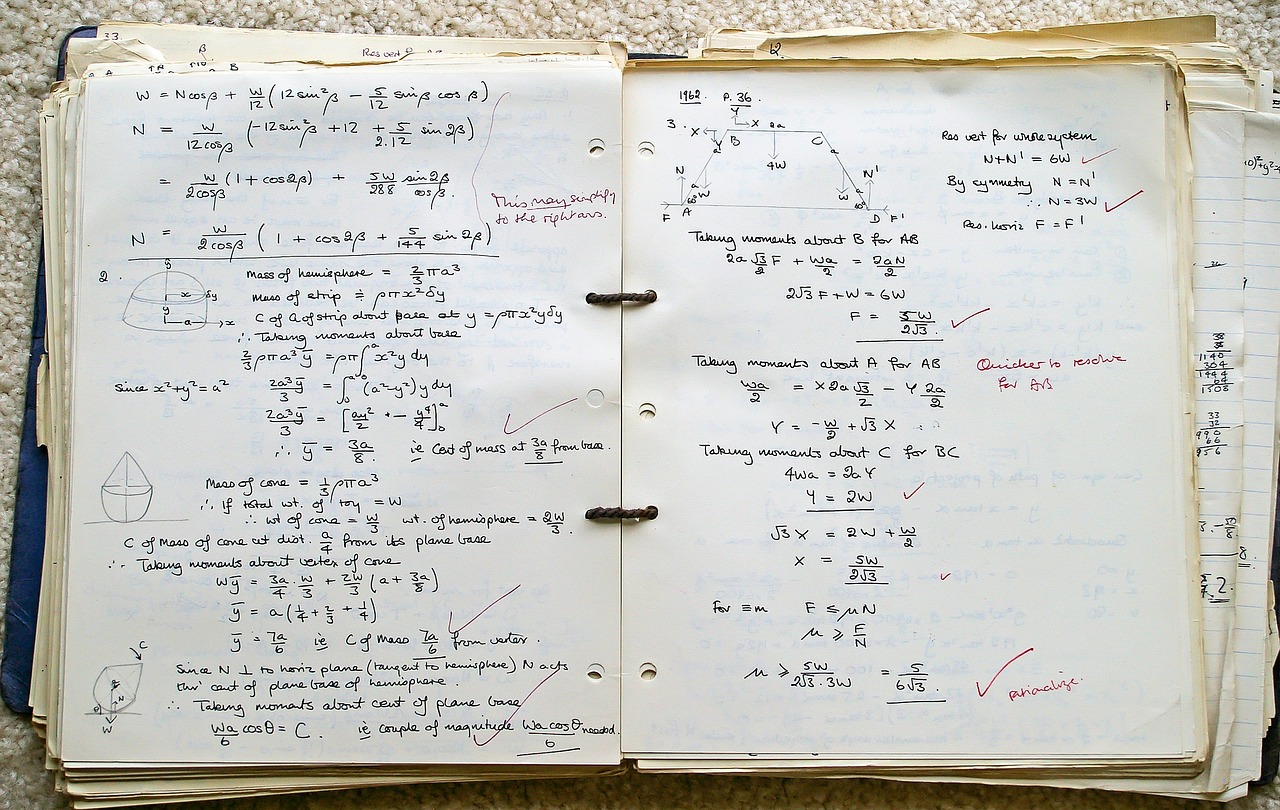 33.
β
Res vert
A B
W = N cos β + W/12 (12 sin²β − 5/12 sin β cos β)
N = W/12cosβ (−12 sin²β + 12 + 5/2.12 sin 2β)
= W/2cosβ (1 + cos 2β) + 5W/288 sin2β/cosβ.
This may simplify
to the right ans.
N = W/2cosβ (1 + cos 2β + 5/144 sin 2β)
2.
y
x δy
y
a x
Mass of hemisphere = 2/3 πa³
Mass of strip ≡ ρπx²δy
C of G of strip about base at y = ρπx²yδy
∴ Taking moments about base
2/3 ρπa³ȳ = ρπ∫₀ᵃ x²y dy
Since x²+y²=a² 2a³ȳ/3 = ∫₀ᵃ (a²−y²) y dy
2a³ȳ/3 = [ay²/2 − y⁴/4]₀ᵃ
∴ ȳ = 3a/8 ie Cent of mass at 3a/8 from base.
Mass of cone = 1/3 ρπa³
∴ If total wt. of toy = W
∴ wt of cone = W/3 wt. of hemisphere = 2W/3.
C of Mass of cone at dist. a/4 from its plane base
∴ Taking moments about vertex of cone
Wȳ = 3a/4 . W/3 + 2W/3 (a + 3a/8)
ȳ = a(1/4 + 2/3 + 1/4)
ȳ = 7a/6 ie C of Mass 7a/6 from vertex.
C
N
θ
W
Since N ⊥ to horiz plane (tangent to hemisphere) N acts
thro' cent of plane base of hemisphere.
∴ Taking moments about cent of plane base
Wa/6 cos θ = C. ie couple of magnitude Wa cos θ/6 needed.
62.
1962. P. 36.
3.
Y
X B X 2a C
a 4W a
N a W W a N'
F A 60° 60° D F'
Res vert for whole system
N+N' = 6W
By symmetry N = N'
∴ N = 3W
Res. horiz F = F'
Taking moments about B for AB
2a √3/2 F + Wa/2 = 2aN/2
2√3 F + W = 6W
F = 5W/2√3.
Taking moments about A for AB
Quicker to resolve
for AB
Wa/2 = X 2a √3/2 − Y 2a/2
Y = −W/2 + √3 X
Taking moments about C for BC
4Wa = 2aY
Y = 2W
√3 X = 2W + W/2
X = 5W/2√3
For ≡m F ≤ μN
μ ≥ F/N
μ ≥ 5W/2√3.3W = 5/6√3.
rationalize.
38
38
1140
304
1444
64
1508
33
32
990
66
956